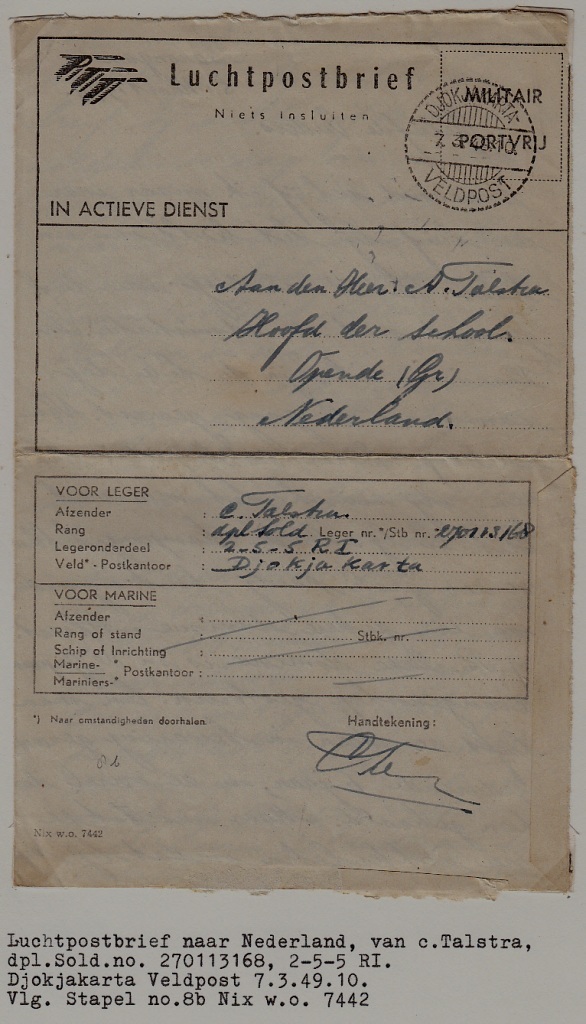 PTT
Luchtpostbrief
Niets insluiten
MILITAIR
PORTVRIJ
DJOKJAKARTA
7.3.49.10.
VELDPOST
IN ACTIEVE DIENST
Aan den Heer: A. Talstra
Hoofd der School.
Opende (Gr)
Nederland.
VOOR LEGER
Afzender : C. Talstra.
Rang : dpl Sold. Leger nr.*/Stb nr. 270113168
Legeronderdeel : 2-5-5 RI
Veld*-Postkantoor : Djokja Karta
VOOR MARINE
Afzender :
Rang of stand : Stbk. nr.
Schip of Inrichting :
Marine-* Postkantoor :
Mariniers-*
*) Naar omstandigheden doorhalen.
Handtekening:
8b
Nix w.o. 7442
Luchtpostbrief naar Nederland, van c.Talstra,
dpl.Sold.no. 270113168, 2-5-5 RI.
Djokjakarta Veldpost 7.3.49.10.
Vlg. Stapel no.8b Nix w.o. 7442